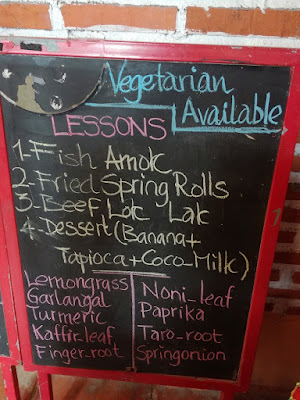 Vegetarian
Available
LESSONS
1-Fish Amok
2-Fried Spring Rolls
3-Beef Lok Lak
4-Dessert (Banana+
Tapioca+Coco-Milk)
Lemongrass
Garlangal
Turmeric
Kaffir-leaf
Finger-root
Noni-leaf
Paprika
Taro-root
Springonion